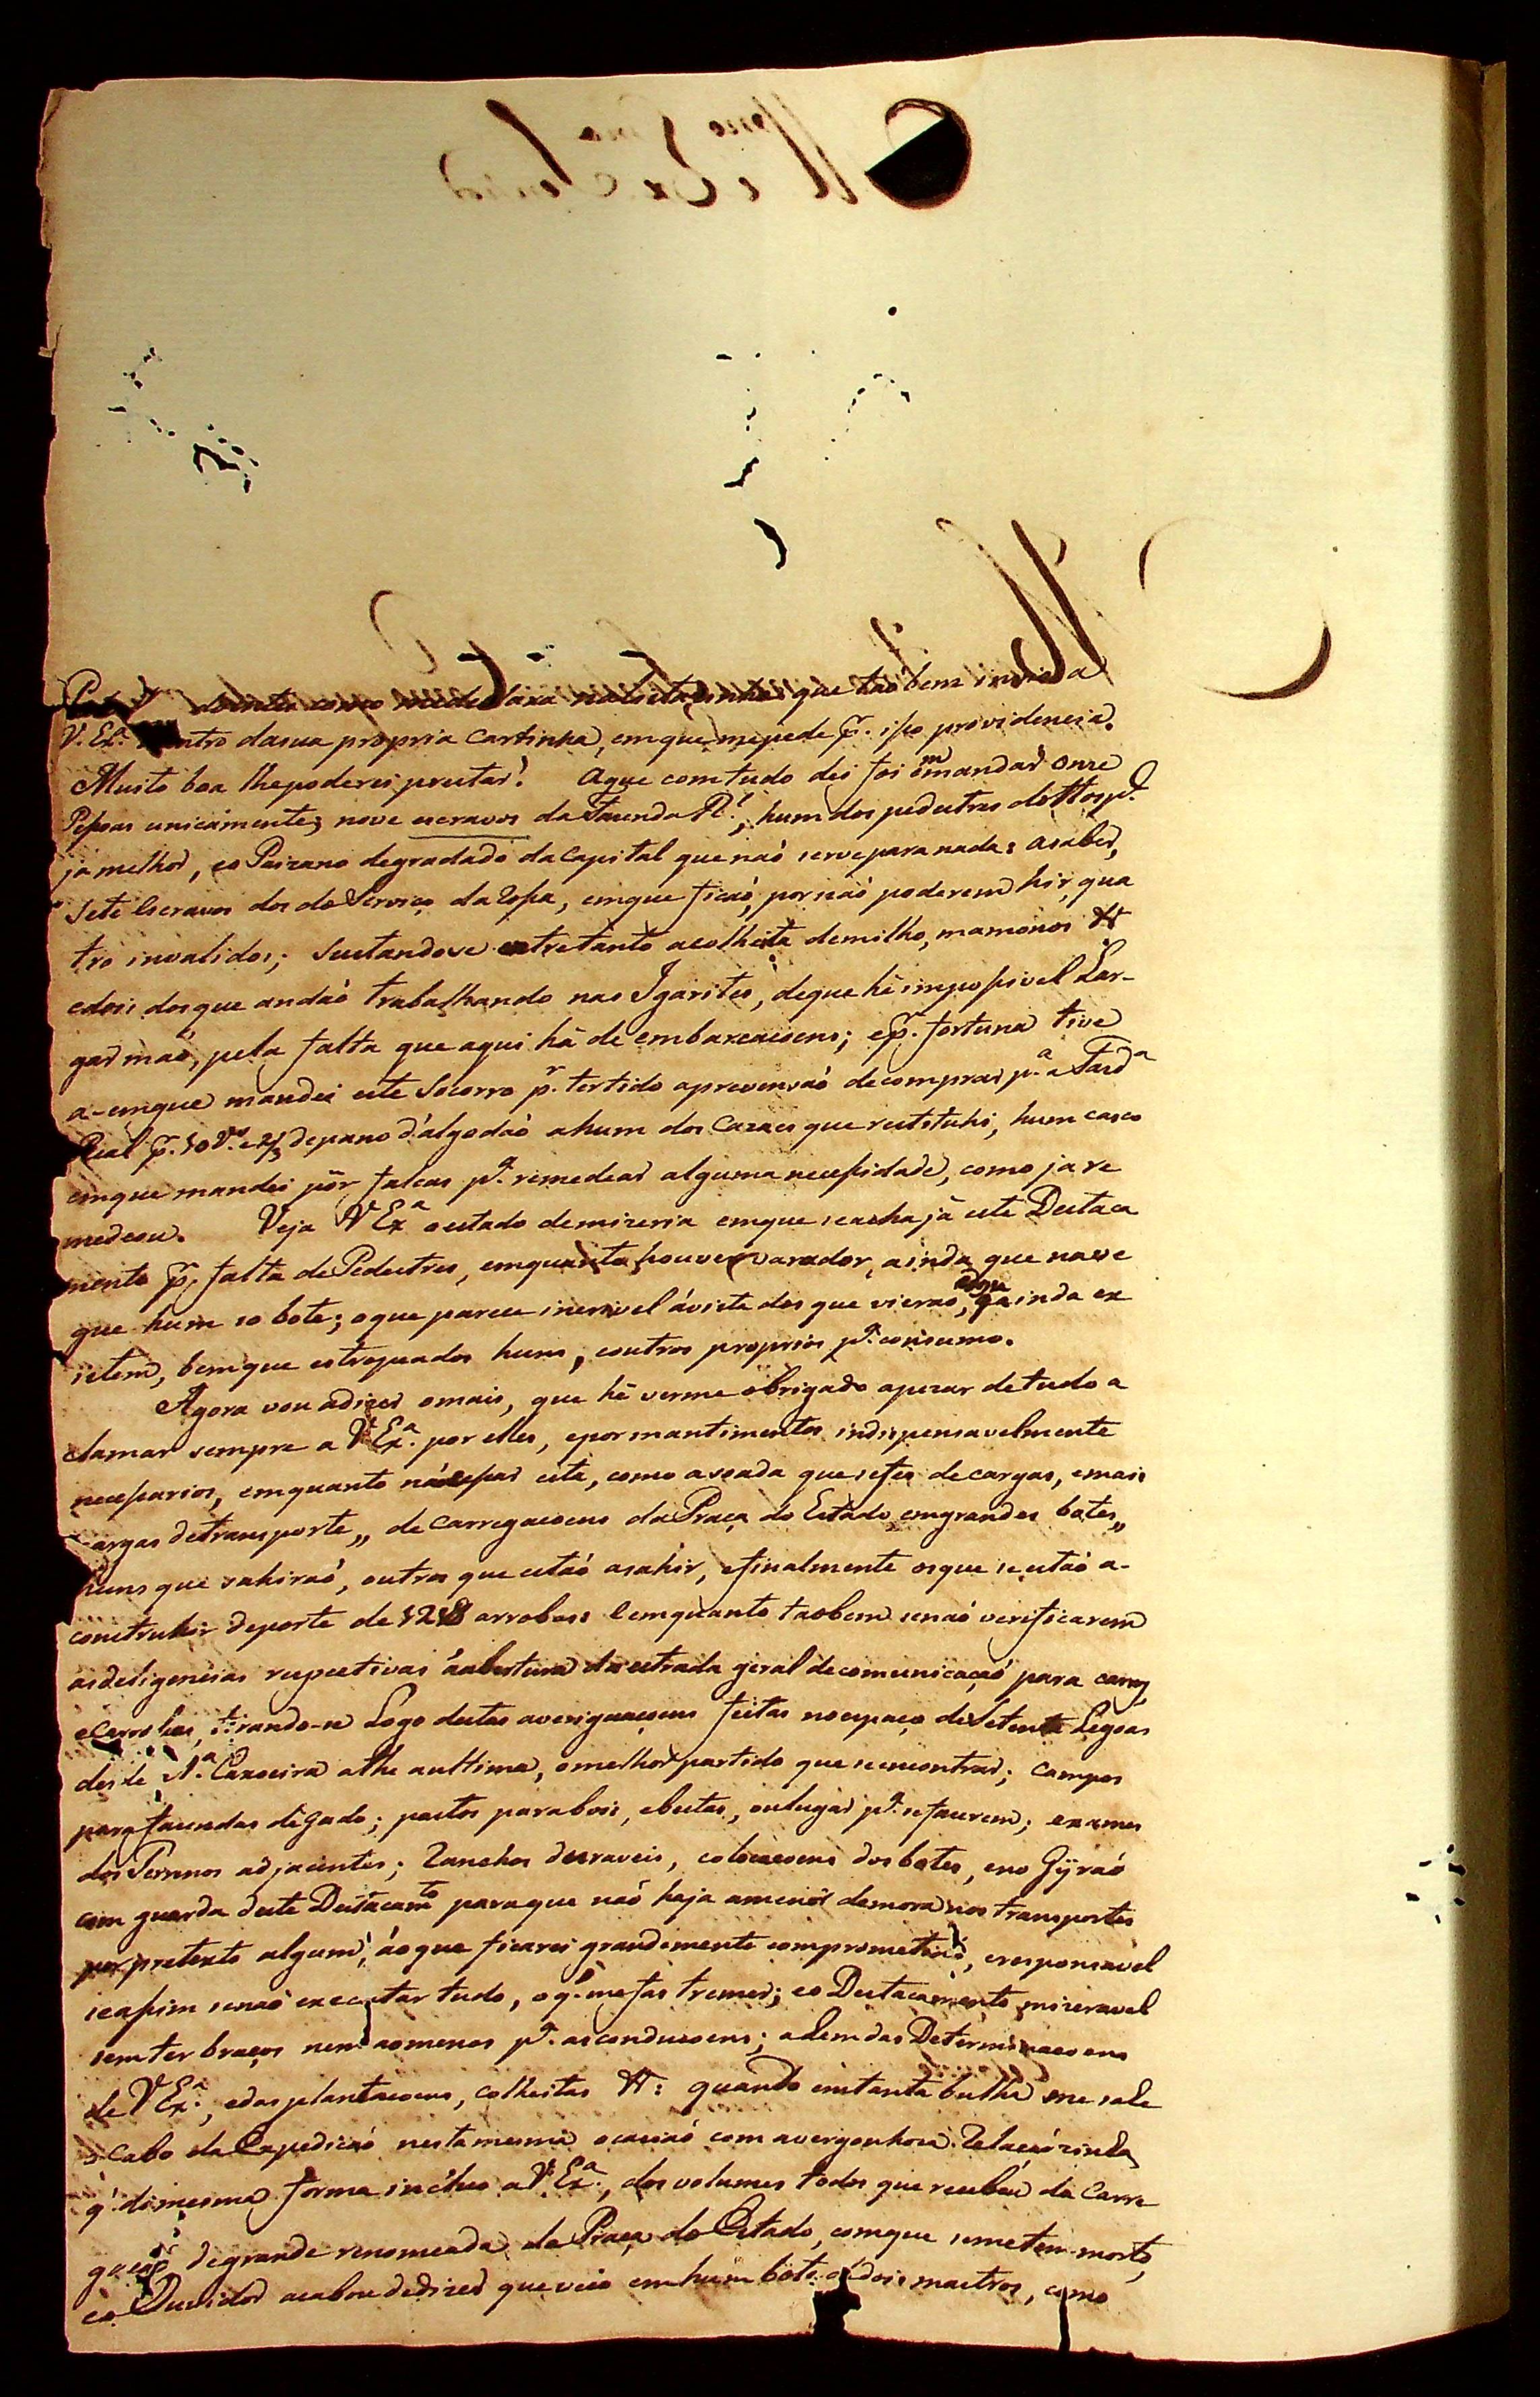 que tao bem incluo a
V. Ex.ª dentro dasua propria Cartinha, emque mepede p.r isso providencia.
Muito boa lhepoderei prestar! Aque comtudo dei foi o mandar onze
Pessoas unicamente; nove escravos da Fazenda R.l, hum dos pedestres do Hosp.l
ja melhor, eo Paizano degradado da Capital que naõ serve para nada: asaber,
sete Escravos dos do Serviço da Rossa, emque ficaõ, por naõ poderem hir, qua
tro invalidos; sustandose entretanto acolheita demilho, mamonos &
edois dosque andaõ trabalhando nas Igarités, deque hé impossivel Lar-
gar maõ, pela falta que aqui há de embarcaçoens; ep.r fortuna tive
a-emque mandei este Socorro p.r ter tido aprevensaõ decomprar p.ª a Fazd.ª
Real p.r 10 V.s e 2/3 depano d'algodaõ ahum dos Cazaes que restituhi, hum casco
emque mandei pôr falcas p.ª remedear alguma necessidade, como ja re
medeou. Veja V Ex.ª oestado demizeria emque seacha já este Destaca
mento p.r falta de Pedestres, emquanto houver varador, ainda que nave
gue hum só bote; oque parece incrivel ávista dos que vieraõ, edosque ainda ex
istem, bemque estropeados huns, eoutros proprios p.ª consumo.
Agora vou adizer omais, que hé verme obrigado apezar detudo a
clamar sempre a V Ex.ª por elles, epor mantimentos indispensavelmente
necessarios, emquanto naõ cessar esta, como assada que setem decargas, emais
cargas detransporte,, de Carregaçoens da Praça do Estado emgrandes botes,,
huns que sahiraõ, outros que estaõ asahir, efinalmente osque se estaõ a-
construhir deporte de arrobas: Eemquanto taobem senaõ verificarem
asdeligencias respectivas áabertura da estrada geral decomunicaçaõ para carros,
ecarretas, tirando-se Logo destas averiguaçoens feitas noespaço de Setenta Legoas
desde 1.ª Caxoeira athe aultima, omelhor partido que seencontrar; Campos
para fazendas de gado; pastos parabois, ebestas, oulugar p.ª se fazerem; exames
dos Terrenos adjacentes; Ranchos duraveis, colocaçoens dos botes, eno Gyráo
com guarda deste Destacam.to paraque naõ haja amenor demora nos transportes
por pretexto algum, áoque ficarei grandemente comprometido, eresponsavel
seassim senaõ executar tudo, oq.' mefas tremer; eo Destacamento mizeravel
semter braços nem aomenos p.ª asconduçoens; alem das Determinaçoens
de V Ex.ª, edas plantaçoens, colheitas &: quando emtanta bulha me sale
oCabo da Expediçaõ nestamesma ocaziaõ com avergonhoza Relaçaõzinha
q.' damesma forma incluo a V. Ex.ª, dos volumes todos que recebeu da Carre
gaçaõ degrande renomeada da Praça do Estado, comque semetem morto,
eo Ouvidor acabou dedizer queveio emhum bote dedois mastros, como